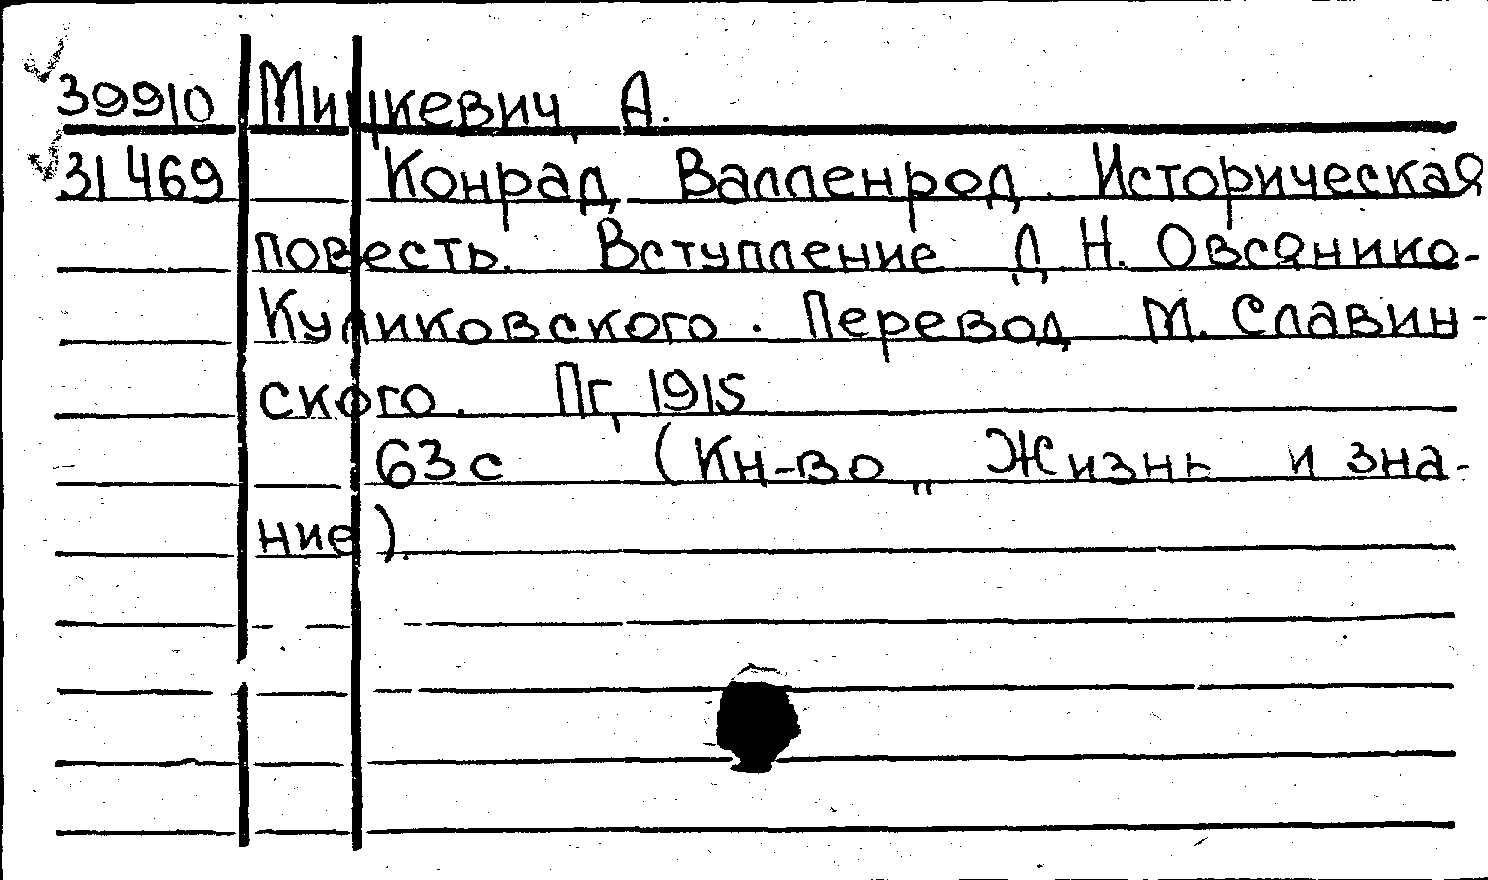 39910 Мицкевич, А.
31469 Конрад Валленрод. Историческая
повесть. Вступление Д.Н. Овсянико-
Куликовского. Перевод М. Славин-
ского. Пг, 1915
63с (Кн-во „Жизнь и зна-
ние).